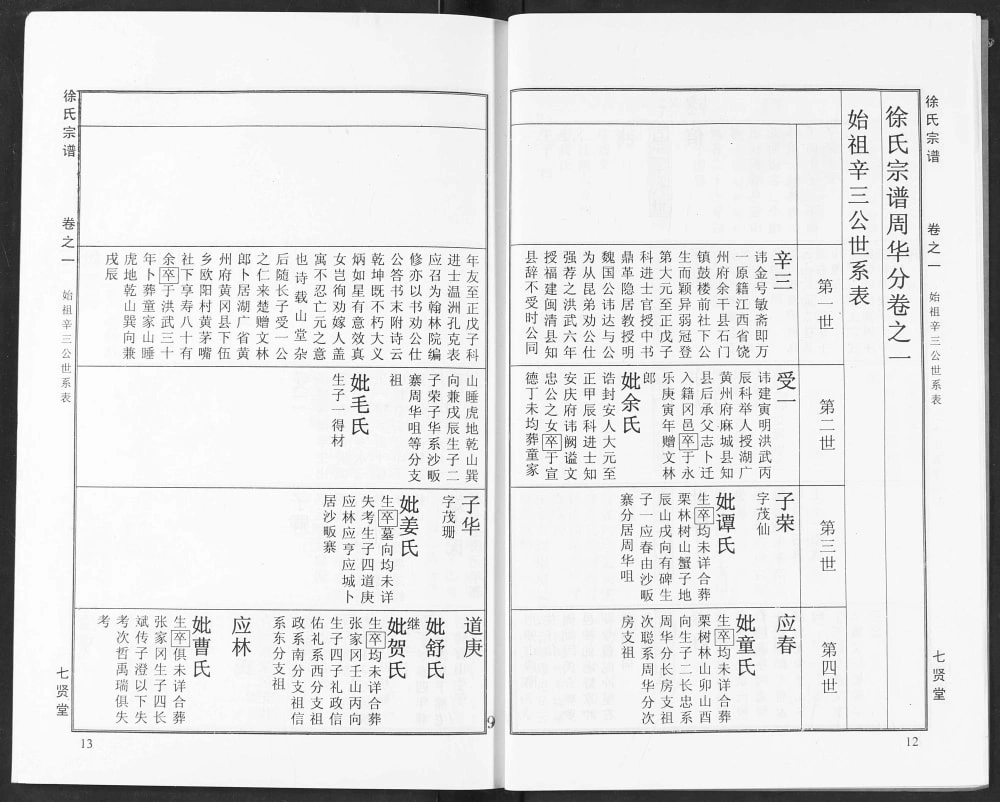 徐氏宗谱
卷之一
始祖辛三公世系表
七贤堂
12
徐氏宗谱周华分卷之一
始祖辛三公世系表
第一世
辛三
讳金号敏斋即万
一原籍江西省饶
州府余干县石门
镇鼓楼前社下公
生而颖异弱冠登
第大元至正戊子
科进士官授中书
鼎革隐居教授明
魏国公讳达与公
为从昆弟劝公仕
强荐之洪武六年
授福建闽清县知
县辞不受时公同
年友至正戊子科
进士温洲孔克表
应召为翰林院编
修亦以书劝公仕
公答书末附诗云
乾坤既不朽大义
炳如星有意效真
女岂徇劝嫁人盖
寓不忍亡元之意
也诗载山堂杂
后随长子受一公
之仁来楚赠文林
郎卜居湖广省黄
州府黄冈县下伍
乡欧阳村黄茅嘴
社下享寿八十有
余卒于洪武三十
年卜葬童家山睡
虎地乾山巽向兼
戌辰
第二世
受一
讳建寅明洪武丙
辰科举人授湖广
黄州府麻城县知
县后承父志卜迁
入籍冈邑卒于永
乐庚寅年赠文林
郎
妣余氏
诰封安人大元至
正甲辰科进士知
安庆府讳阙谥文
忠公之女卒于宣
德丁未均葬童家
山睡虎地乾山巽
向兼戌辰生子二
子荣子华系沙畈
寨周华咀等分支
祖
妣毛氏
生子一得材
第三世
子荣
字茂仙
妣谭氏
生卒均未详合葬
栗林树山蟹子地
辰山戌向有碑生
子一应春由沙畈
寨分居周华咀
子华
字茂珊
妣姜氏
生卒墓向均未详
失考生子四道庚
应林应亨应城卜
居沙畈寨
第四世
应春
妣童氏
生卒均未详合葬
栗树林山卯山酉
向生子二长忠系
周华分长房支祖
次聪系周华分次
房支祖
道庚
妣舒氏
继
妣贺氏
生卒均未详合葬
张家冈壬山丙向
生子四子礼政信
佑礼系西分支祖
政系南分支祖信
系东分支祖
应林
妣曹氏
生卒俱未详合葬
张家冈生子四长
斌传子澄以下失
考次哲禹瑞俱失
考
9
徐氏宗谱
卷之一
始祖辛三公世系表
七贤堂
13